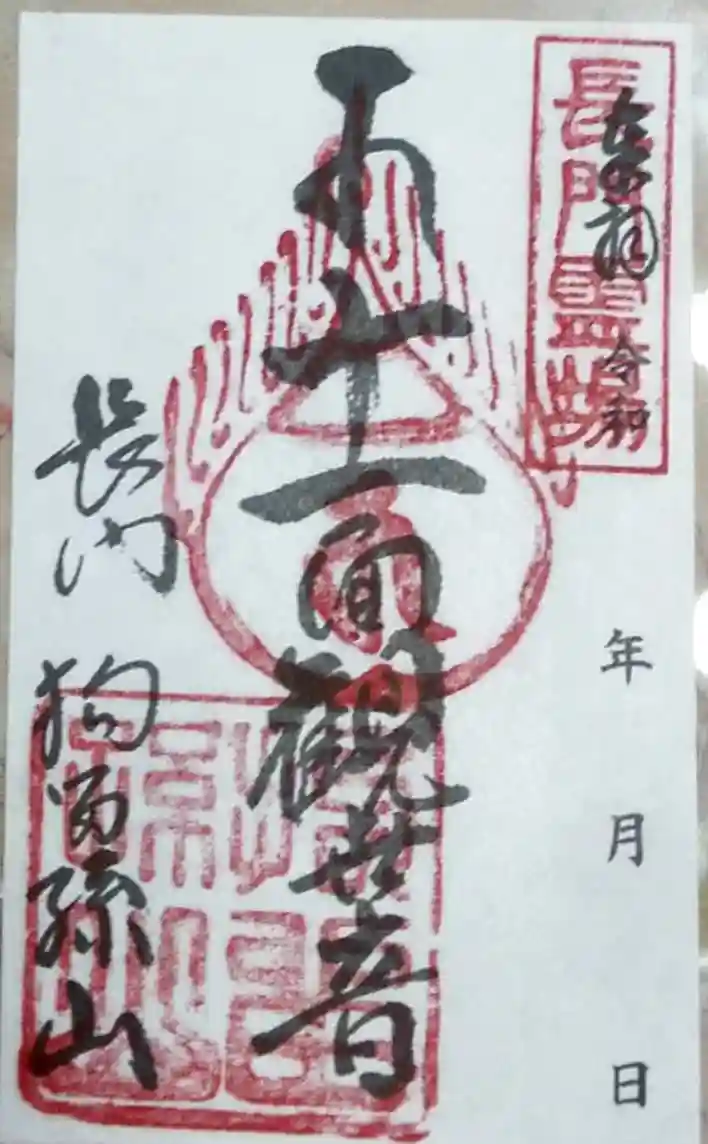 長門霊場
奉拝 令和 年 月 日
十一面觀世音
長門 狗留孫山